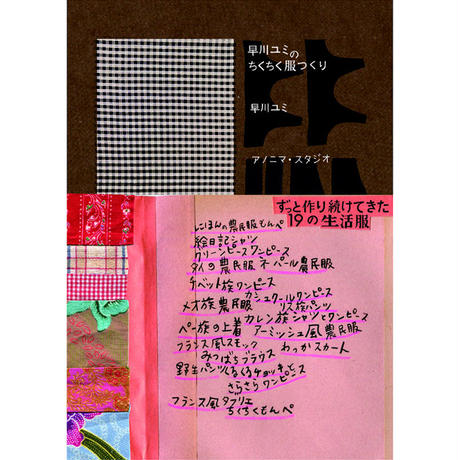 早川ユミの
ちくちく服つくり
早川ユミ
アノニマ・スタジオ
ずっと作り続けてきた
19の生活服
にほんの農民服もんぺ
絵日記シャツ
クリーンピースワンピース
タイの農民服 ネパール農民服
チベット族ワンピース
カシュクールワンピース
メオ族農民服 リス族パンツ
カレン族シャツとワンピース
ペー族の上着 アーミッシュ風農民服
フランス風スモック わっかスカート
みつばちブラウス
野生パンツ ぐるぐるチョッキと
さらさらワンピース
フランス風タブリエ
ちくちくもんぺ